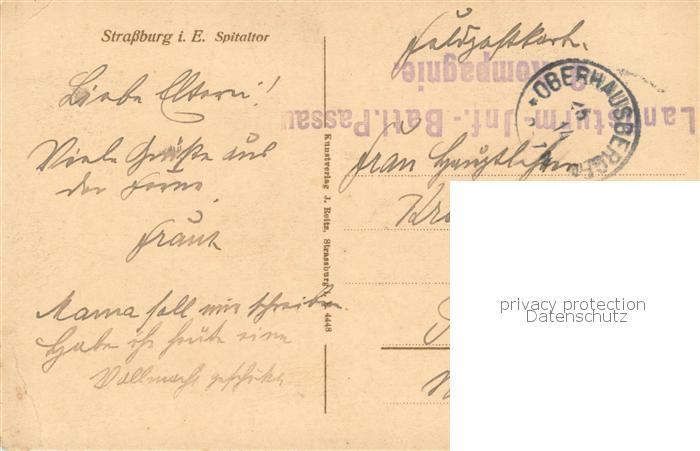 Straßburg i. E. Spitaltor
Liebe Eltern!
Viele Grüße aus
der Ferne
Franz
Mama soll mir schreiben.
Habe ihr heute eine
Vollmacht geschickt
Kunstverlag J. Reitz, Strassburg i. E. 4448
Feldpostkarte.
Kompagnie
Landsturm-Inf.-Batl. Passau
OBERHAUSBERGEN
Frau Hauptlehrer
privacy protection
Datenschutz